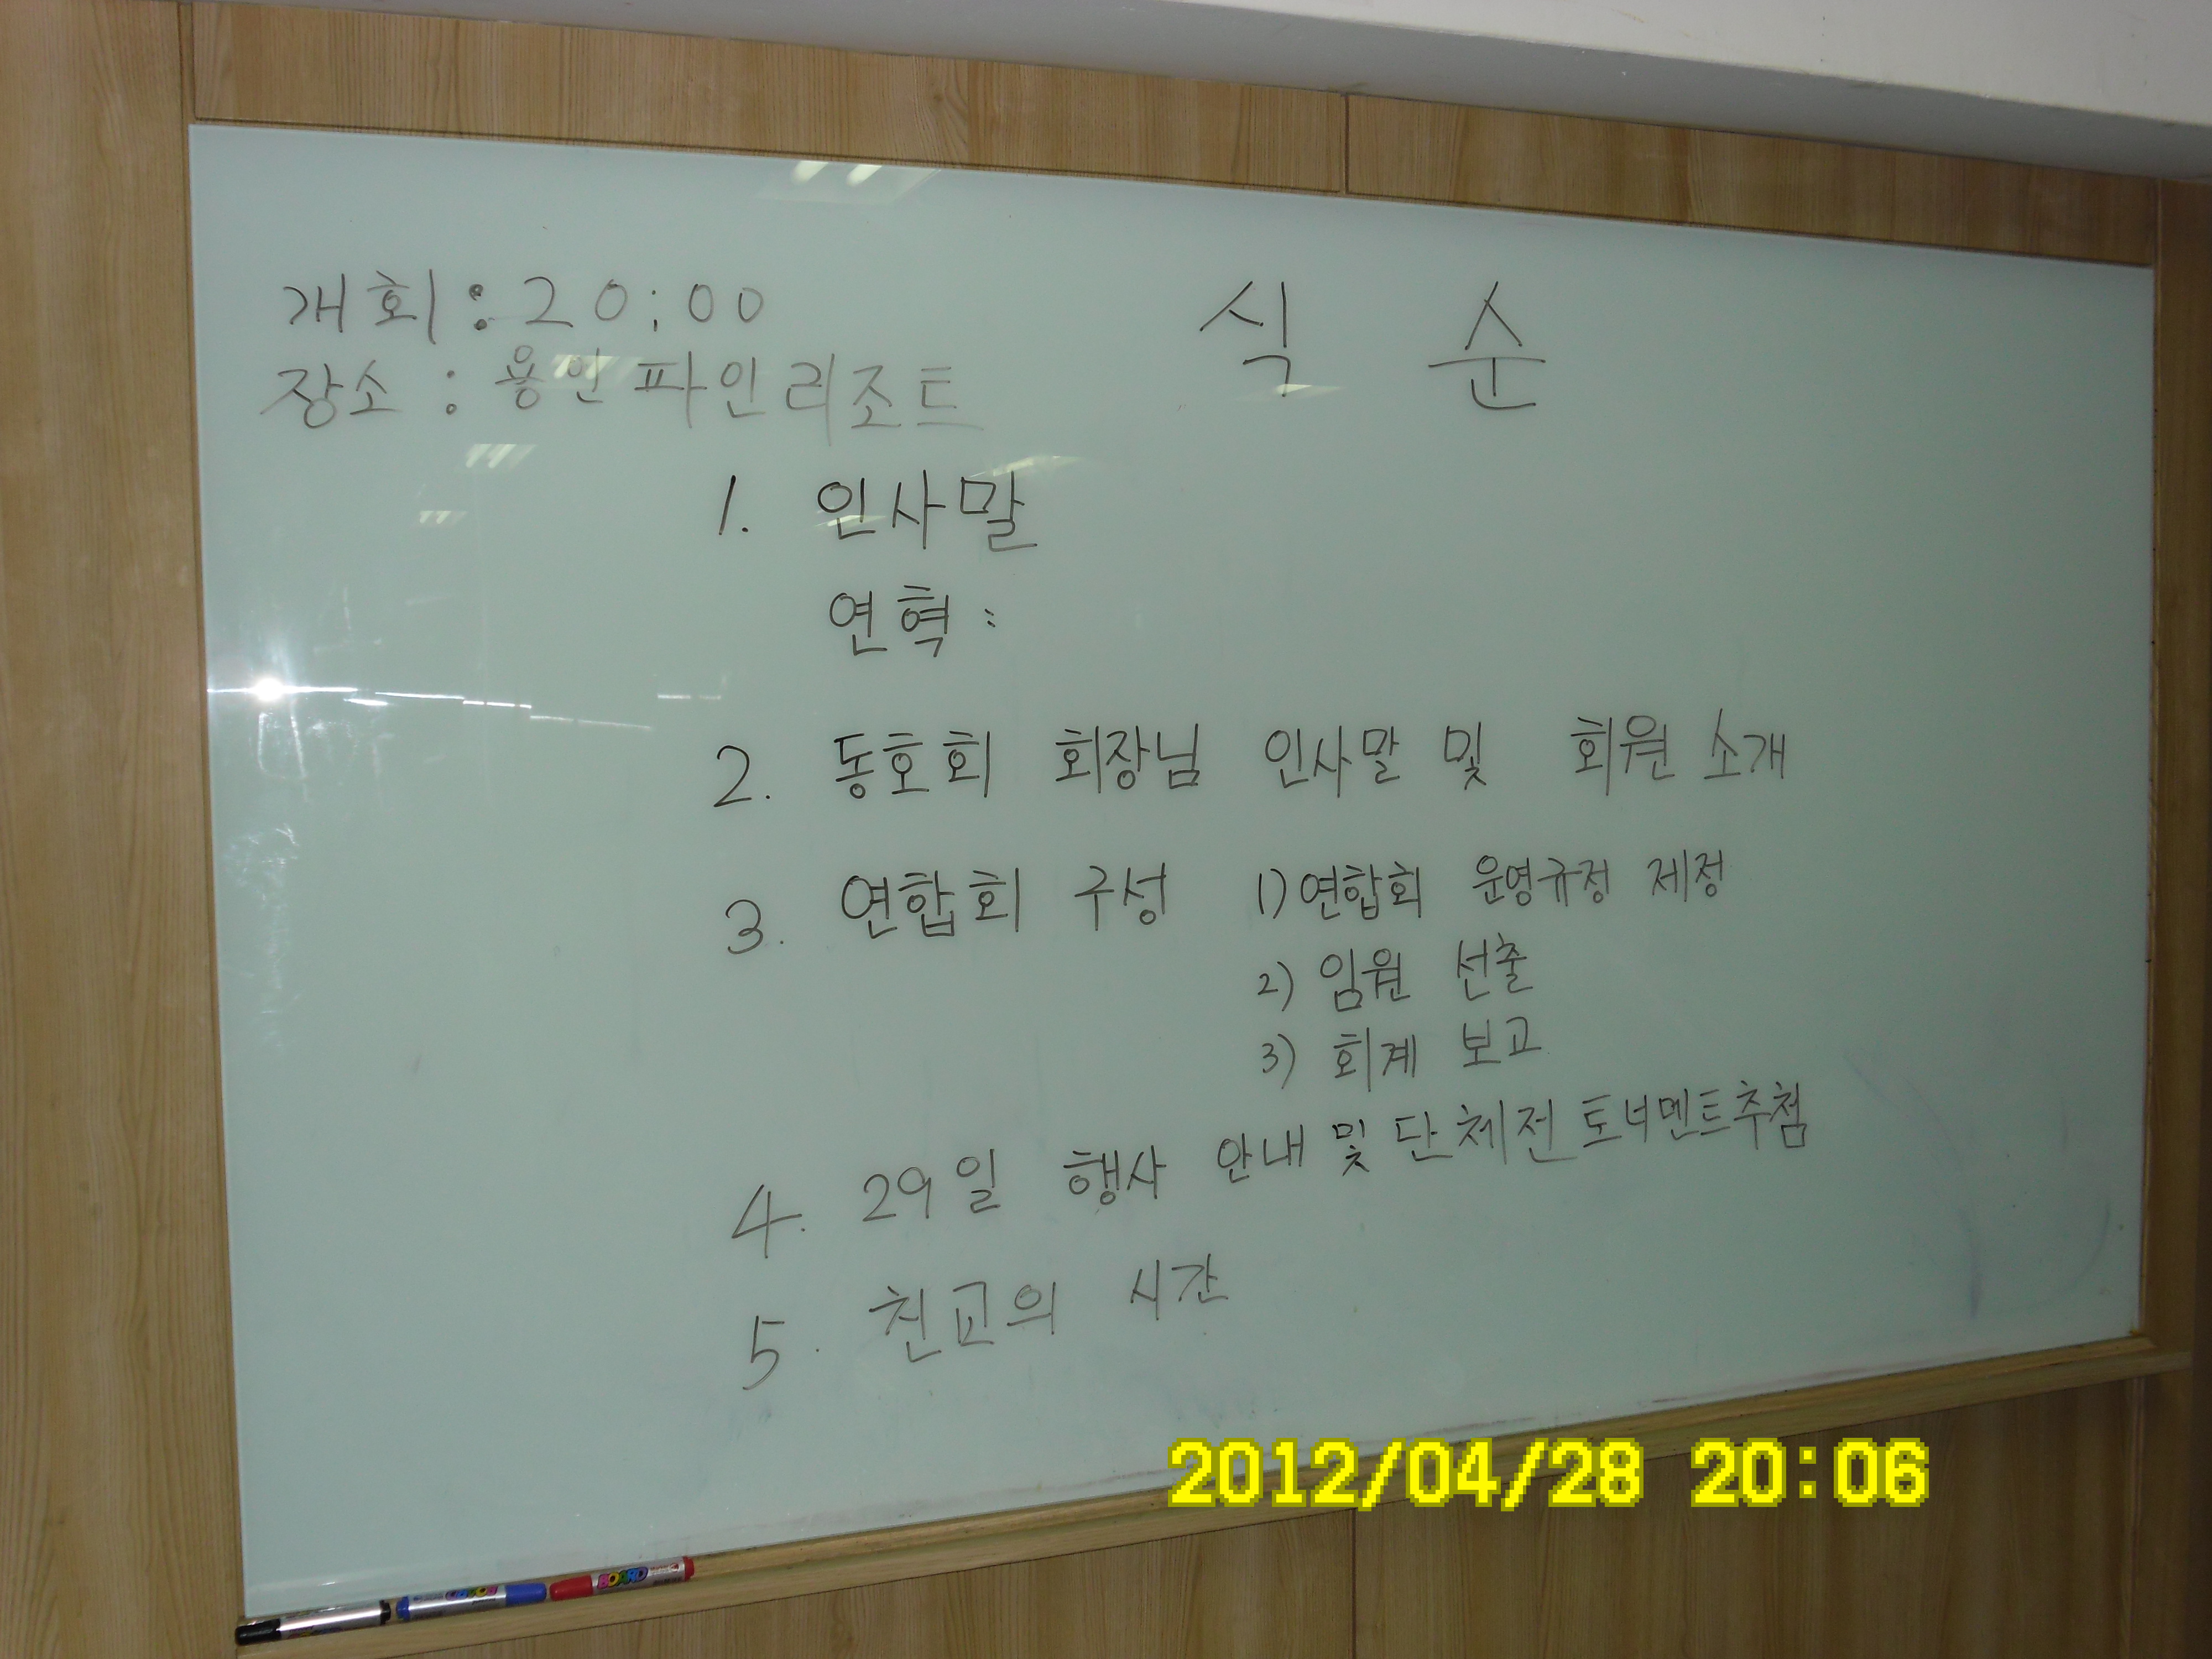 식 순
개회 : 20:00
장소 : 용인파인리조트
1. 인사말
연혁 :
2. 동호회 회장님 인사말 및 회원 소개
3. 연합회 구성 1) 연합회 운영규정 제정
2) 임원 선출
3) 회계 보고
4. 29일 행사 안내 및 단체전 토너멘트추첨
5. 친교의 시간
2012/04/28 20:06
BOARD